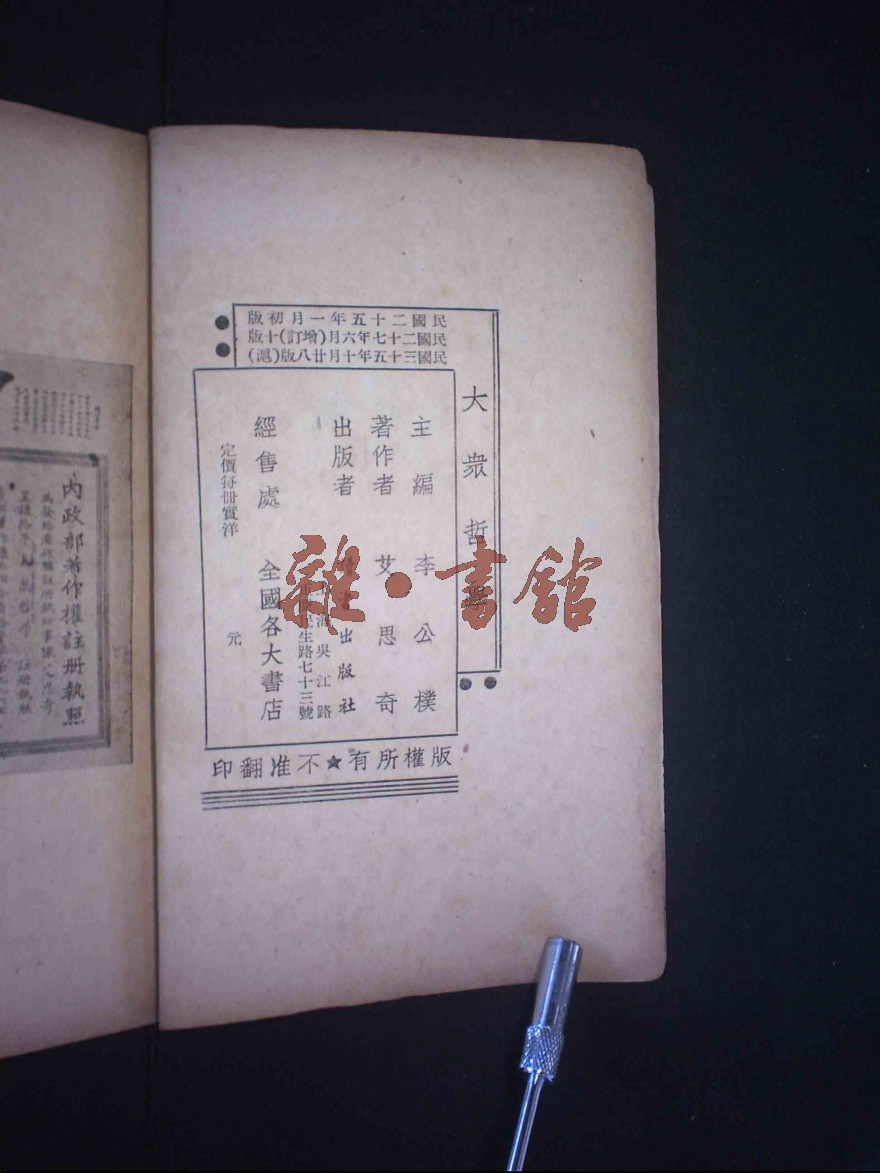 大衆哲學
民國二十五年一月初版
民國二十七年六月(增訂)十版
民國三十五年十月廿八版(滬)
主編 李公樸
著作者 艾思奇
出版者 出版社
吳江路
生路七十三號
經售處 全國各大書店
定價每冊實洋 元
版權所有★不准翻印
雜·書館
內政部著作權註册執照